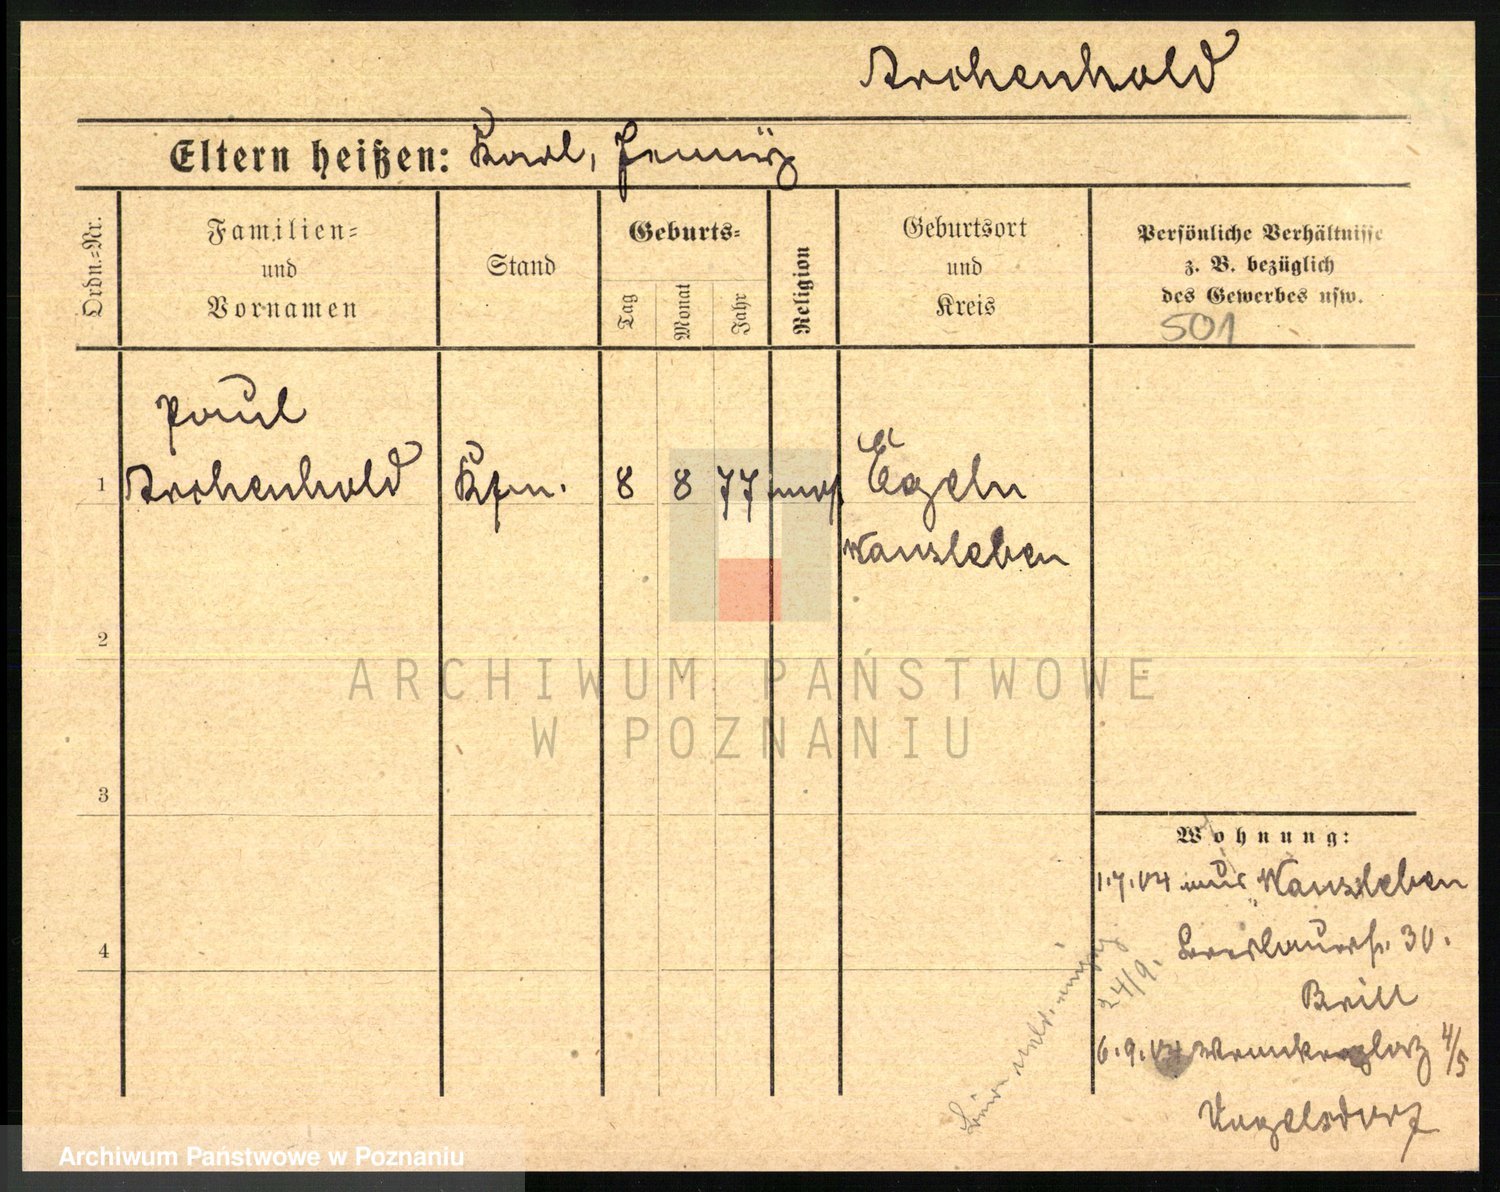 Archenhold
Eltern heißen: Karl, Jenny
Ordn.=Nr.
Familien=
und
Vornamen
Stand
Geburts=
Tag
Monat
Jahr
Religion
Geburtsort
und
Kreis
Persönliche Verhältnisse
z. B. bezüglich
des Gewerbes usw.
501
Paul
1 Archenhold Kfm. 8 8 77 mos. Egeln
Wansleben
2
3
4
Wohnung:
1.7.04 aus Wansleben
Breslauerstr. 30.
Brill
6.9.04 4/5
Vogelsdorf
24/9.
ARCHIWUM PAŃSTWOWE
W POZNANIU
Archiwum Państwowe w Poznaniu